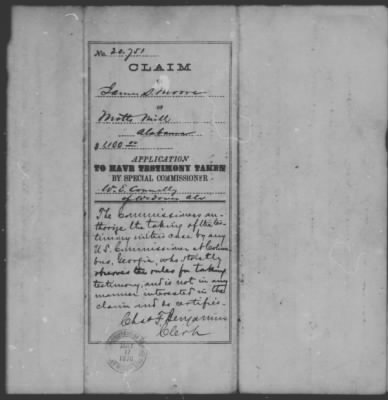 No. 20,751
CLAIM
of
James S. Moore
of
Motts Mill
Alabama
$1,100.00
APPLICATION
TO HAVE TESTIMONY TAKEN
BY SPECIAL COMMISSIONER
W. E. Connelly
of Wedowee Ala
The Commissioners au-
thorize the taking of the tes-
timony in this case by any
U.S. Commissioner at Colum-
bus, Georgia, who strictly
observes the rules for taking
testimony, and is not in any
manner interested in the
claim and so certifies.
Chas F. Benjamin
Clerk